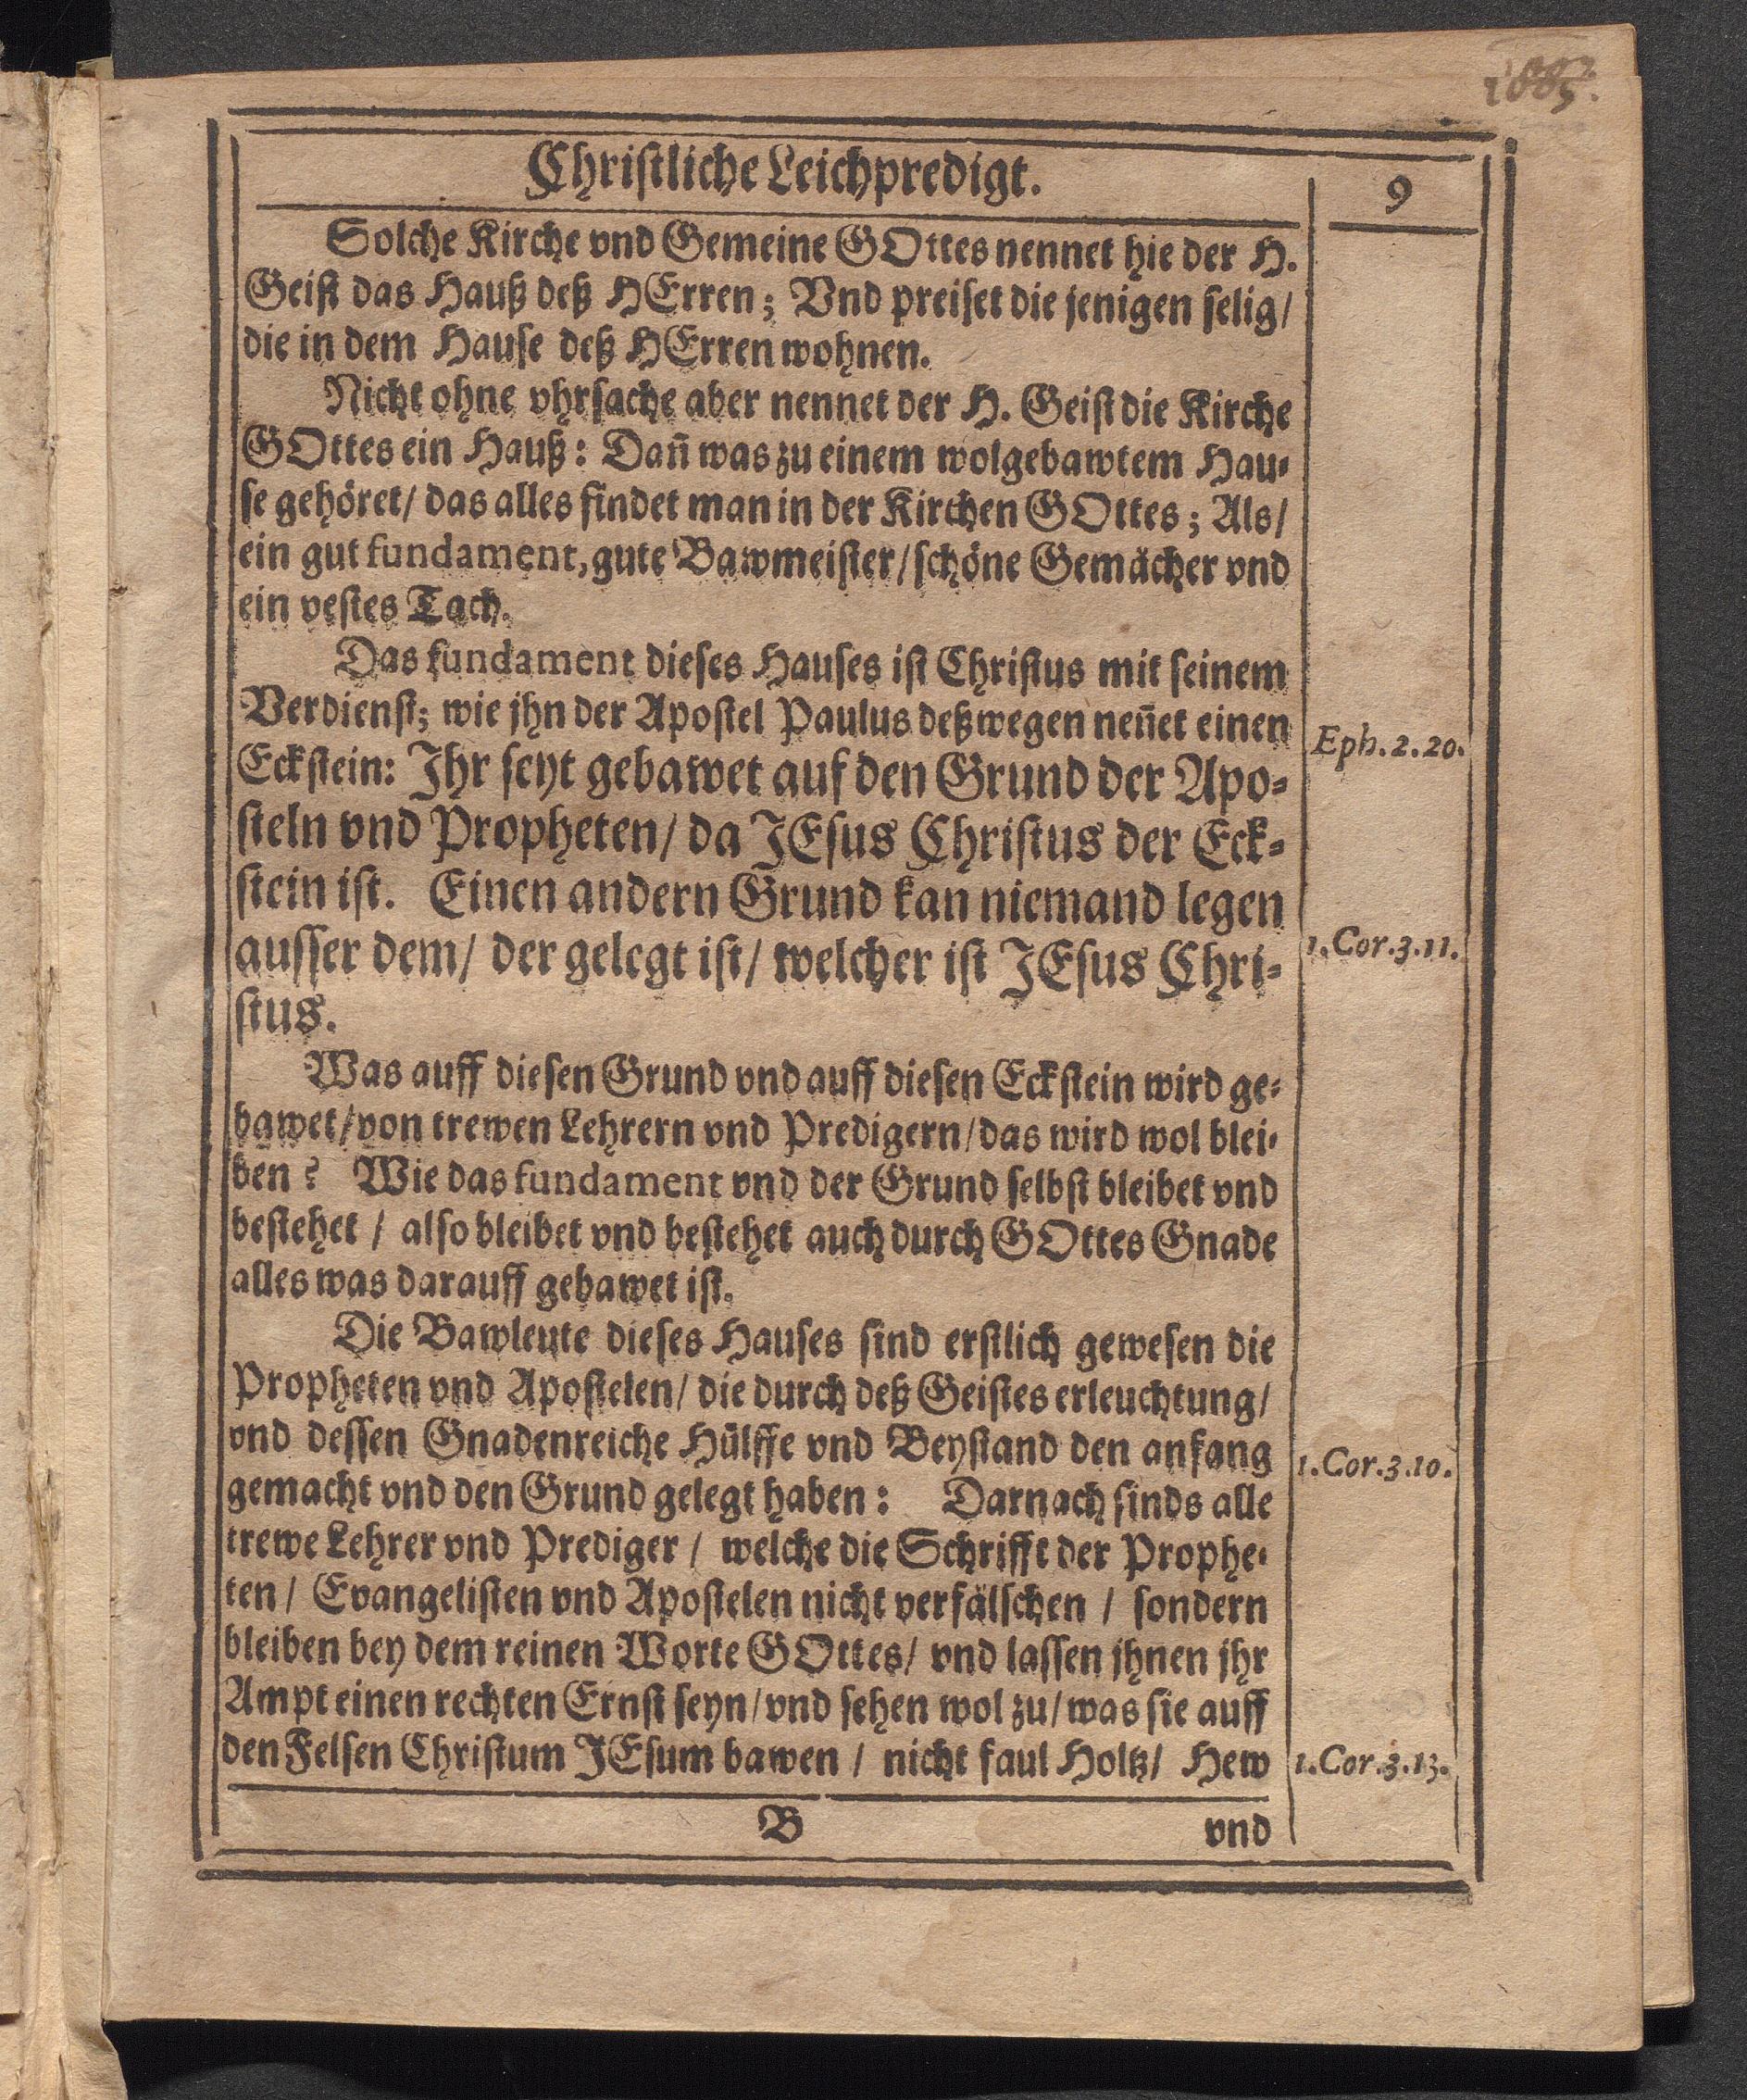 Christliche Leichpredigt.
9
Solche Kirche vnd Gemeine GOttes nennet hie der H.
Geist das Hauß deß HErren; Vnd preiset die jenigen selig/
die in dem Hause deß HErren wohnen.
Nicht ohne vhrsache aber nennet der H. Geist die Kirche
GOttes ein Hauß: Dañ was zu einem wolgebawtem Hau-
se gehöret/ das alles findet man in der Kirchen GOttes; Als/
ein gut fundament, gute Bawmeister/ schöne Gemächer vnd
ein vestes Tach.
Das fundament dieses Hauses ist Christus mit seinem
Verdienst; wie jhn der Apostel Paulus deßwegen neñet einen
Eph. 2. 20.
Eckstein: Ihr seyt gebawet auf den Grund der Apo-
steln vnd Propheten/ da JEsus Christus der Eck-
stein ist. Einen andern Grund kan niemand legen
ausser dem/ der gelegt ist/ welcher ist JEsus Chri-
1. Cor. 3. 11.
stus.
Was auff diesen Grund vnd auff diesen Eckstein wird ge-
bawet/ von trewen Lehrern vnd Predigern/ das wird wol blei-
ben? Wie das fundament vnd der Grund selbst bleibet vnd
bestehet / also bleibet vnd bestehet auch durch GOttes Gnade
alles was darauff gebawet ist.
Die Bawleute dieses Hauses sind erstlich gewesen die
Propheten vnd Apostelen/ die durch deß Geistes erleuchtung/
vnd dessen Gnadenreiche Hülffe vnd Beystand den anfang
1. Cor. 3. 10.
gemacht vnd den Grund gelegt haben: Darnach sinds alle
trewe Lehrer vnd Prediger / welche die Schrifft der Prophe-
ten / Evangelisten vnd Apostelen nicht verfälschen / sondern
bleiben bey dem reinen Worte GOttes/ vnd lassen jhnen jhr
Ampt einen rechten Ernst seyn/ vnd sehen wol zu/ was sie auff
den Felsen Christum JEsum bawen / nicht faul Holtz/ Hew
1. Cor. 3. 13.
B
vnd